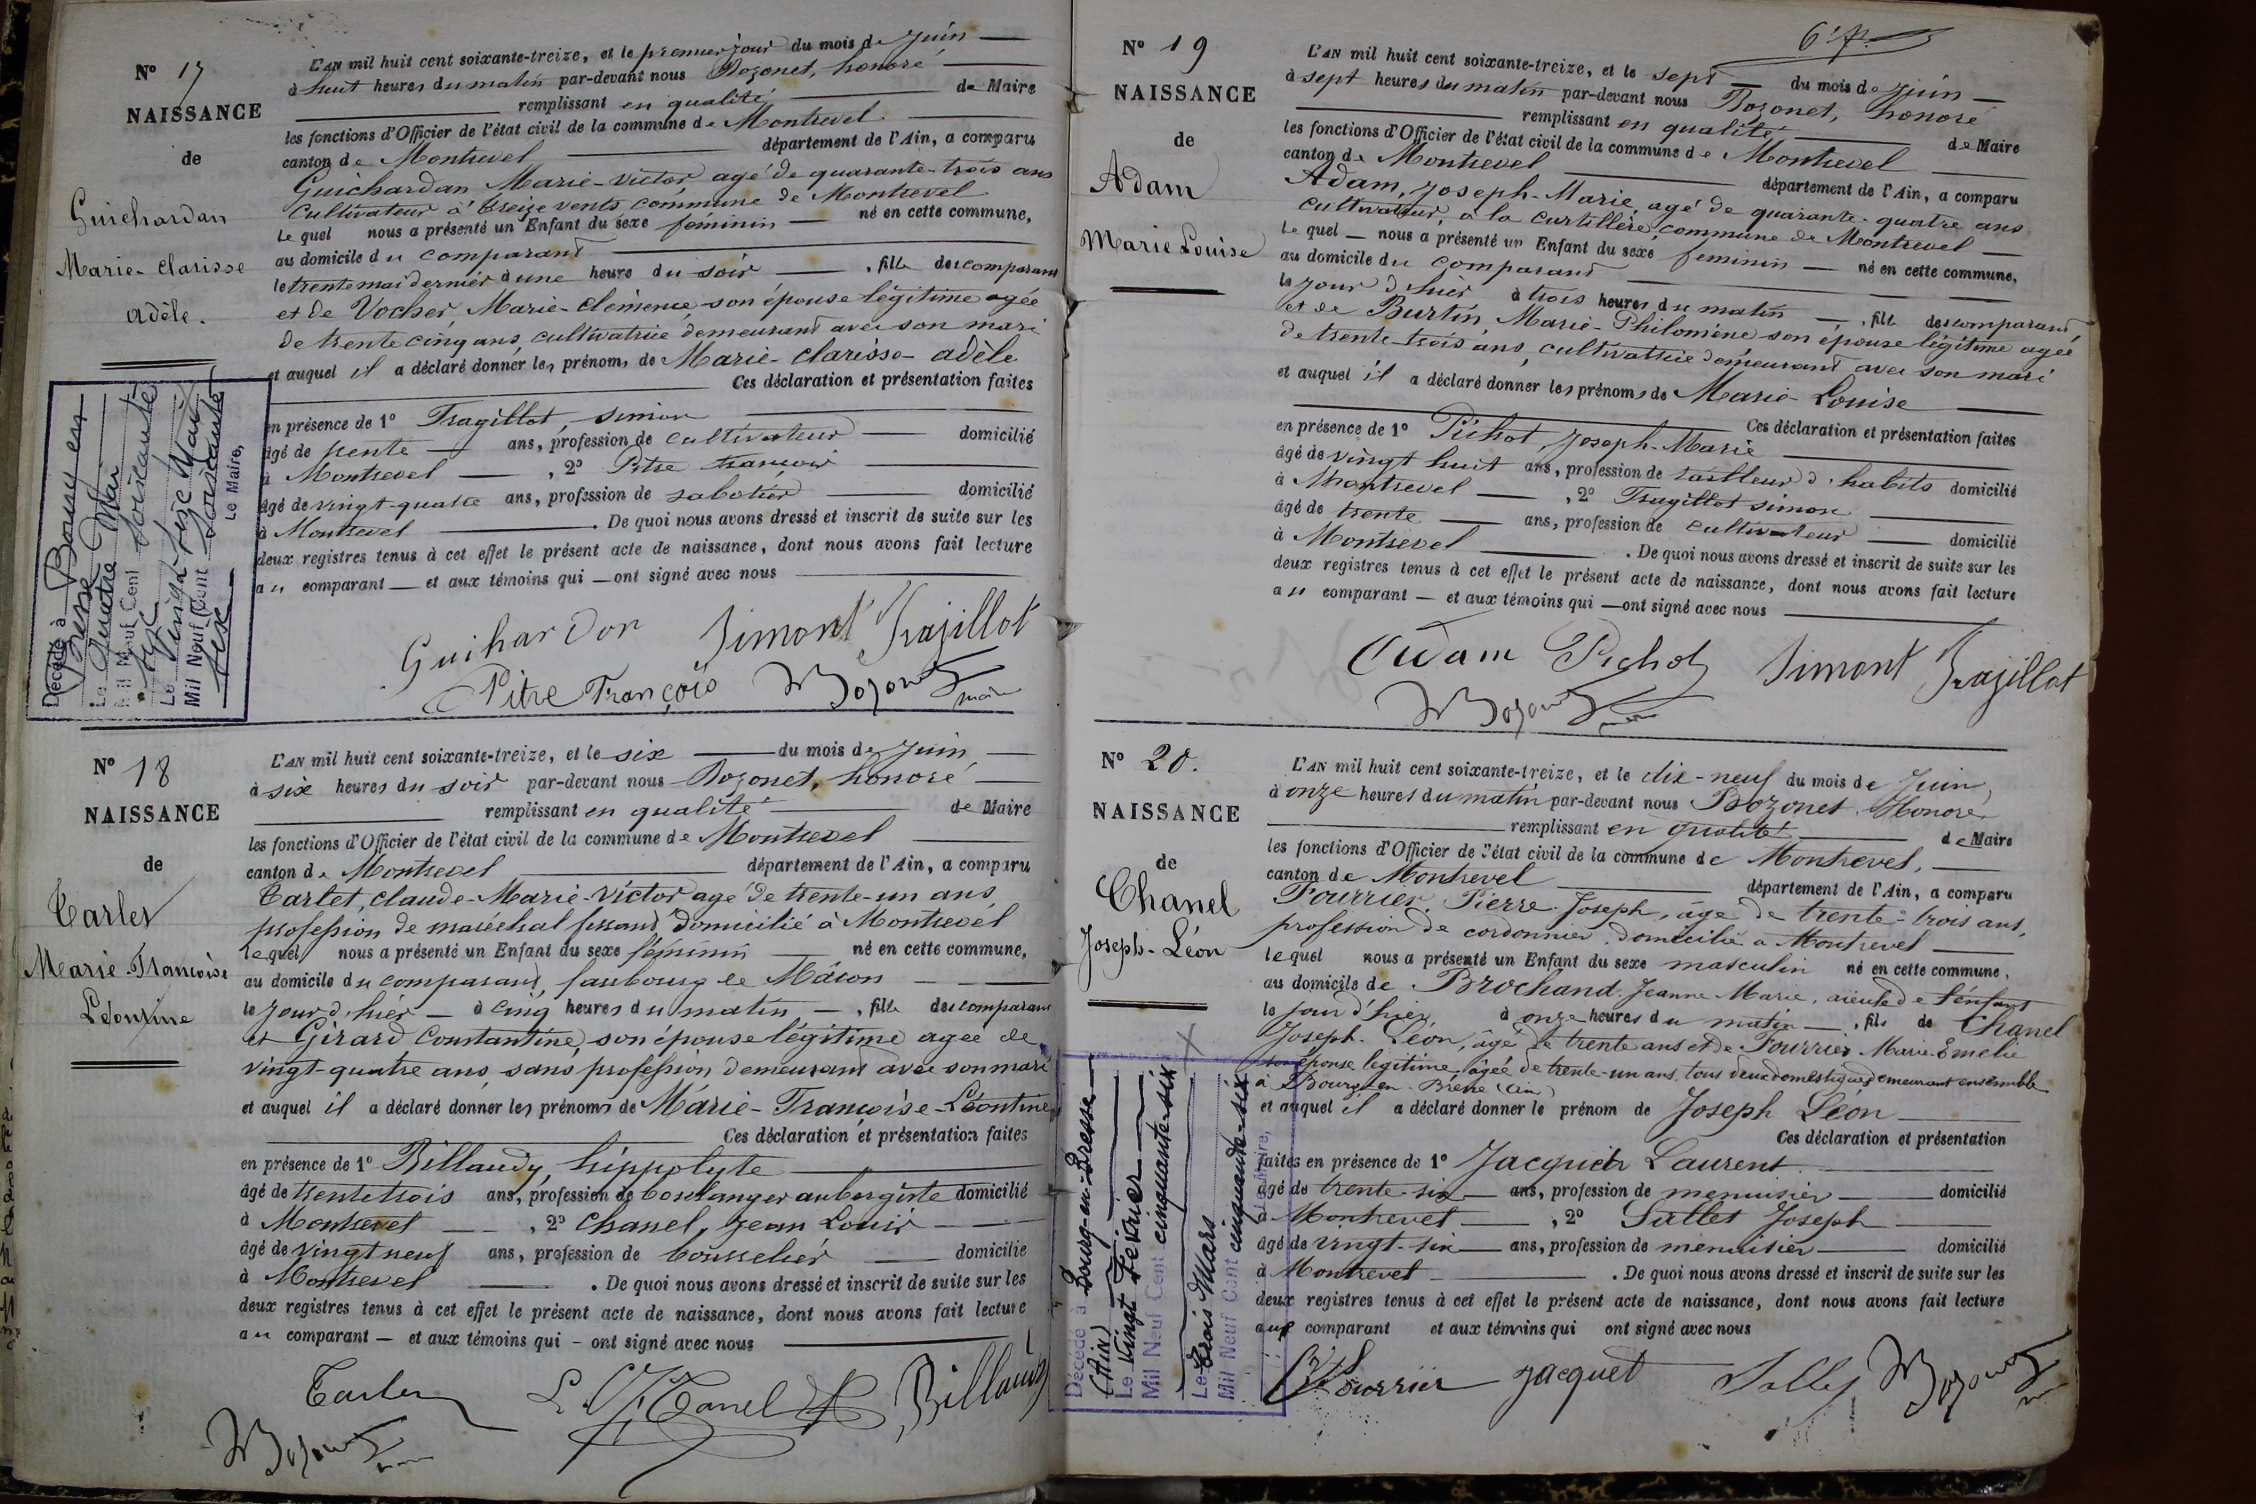 N° 17
NAISSANCE
de
Guichardan
Marie-Clarisse
Adèle.
L'AN mil huit cent soixante-treize, et le premier jour du mois de Juin
à huit heures du matin par-devant nous Bozonet, honoré
remplissant en qualité de Maire
les fonctions d'Officier de l'état civil de la commune de Montrevel
canton de Montrevel département de l'Ain, a comparu
Guichardan Marie-Victor, agé de quarante-trois ans
Cultivateur à treize vents, commune de Montrevel
Le quel nous a présenté un Enfant du sexe féminin né en cette commune,
au domicile du comparant
le trente mai dernier à une heure du soir, fille des comparant
et de Vocher, Marie-Clémence son épouse légitime agée
de trente cinq ans, cultivatrice demeurant avec son mari
et auquel il a déclaré donner les prénoms de Marie-Clarisse-adèle
Ces déclaration et présentation faites
en présence de 1° Tragillot, Simon
âgé de trente ans, profession de cultivateur domicilié
à Montrevel, 2° Pitre françois
âgé de vingt-quatre ans, profession de sabotier domicilié
à Montrevel. De quoi nous avons dressé et inscrit de suite sur les
deux registres tenus à cet effet le présent acte de naissance, dont nous avons fait lecture
au comparant et aux témoins qui ont signé avec nous
Guihardon Simont Trajillot
Pitre François Bozonet maire
Décédé à Bourg en
Bresse
Le Quatre Mai
Mil Neuf Cent soixante
Le Vingt-six Mai
Mil Neuf Cent soixante
Le Maire,
N° 18
NAISSANCE
de
Tarlet
Marie-Françoise
Léontine
L'AN mil huit cent soixante-treize, et le six du mois de Juin
à six heures du soir par-devant nous Bozonet, honoré
remplissant en qualité de Maire
les fonctions d'Officier de l'état civil de la commune de Montrevel
canton de Montrevel département de l'Ain, a comparu
Tarlet, claude-Marie-Victor agé de trente-un ans
profession de maréchal ferrant domicilié à Montrevel
Le quel nous a présenté un Enfant du sexe féminin né en cette commune,
au domicile du comparant, faubourg de Mâcon
le jour d'hier à cinq heures du matin, fille des comparant
et Girard Constantine, son épouse légitime agée de
vingt-quatre ans, sans profession demeurant avec son mari
et auquel il a déclaré donner les prénoms de Marie-Françoise-Léontine
Ces déclaration et présentation faites
en présence de 1° Billaudy, hippolyte
âgé de trente trois ans, profession de boulanger aubergiste domicilié
à Montrevel, 2° Chanel, Jean Louis
âgé de vingt neuf ans, profession de bourrelier domicilié
à Montrevel. De quoi nous avons dressé et inscrit de suite sur les
deux registres tenus à cet effet le présent acte de naissance, dont nous avons fait lecture
au comparant et aux témoins qui ont signé avec nous
Tarlet L Canel Billaudy
Bozonet
N° 19
NAISSANCE
de
Adam
Marie Louise
L'AN mil huit cent soixante-treize, et le sept du mois de Juin
à sept heures du matin par-devant nous Bozonet, honoré
remplissant en qualité de Maire
les fonctions d'Officier de l'état civil de la commune de Montrevel
canton de Montrevel département de l'Ain, a comparu
Adam, Joseph-Marie, agé de quarante-quatre ans
cultivateur, à la Curtillère, commune de Montrevel
Le quel nous a présenté un Enfant du sexe féminin né en cette commune,
au domicile du comparant
le jour d'hier à trois heures du matin, fille des comparant
et de Burtin, Marie-Philomène son épouse légitime agée
de trente-trois ans, cultivatrice demeurant avec son mari
et auquel il a déclaré donner les prénoms de Marie-Louise
Ces déclaration et présentation faites
en présence de 1° Pichot, Joseph-Marie
âgé de vingt huit ans, profession de tailleur d'habits domicilié
à Montrevel, 2° Tragillot simon
âgé de trente ans, profession de cultivateur domicilié
à Montrevel. De quoi nous avons dressé et inscrit de suite sur les
deux registres tenus à cet effet le présent acte de naissance, dont nous avons fait lecture
au comparant et aux témoins qui ont signé avec nous
Adam Pichot Simont Trajillot
Bozonet
N° 20.
NAISSANCE
de
Chanel
Joseph-Léon
L'AN mil huit cent soixante-treize, et le dix-neuf du mois de Juin,
à onze heures du matin par-devant nous Bozonet Honoré,
remplissant en qualité de Maire
les fonctions d'Officier de l'état civil de la commune de Montrevel,
canton de Montrevel département de l'Ain, a comparu
Fourrier, Pierre Joseph, âgé de trente-trois ans,
profession de cordonnier, domicilié à Montrevel
Le quel nous a présenté un Enfant du sexe masculin né en cette commune,
au domicile de Brochand, Jeanne Marie, aïeule de l'enfant
le jour d'hier à onze heures du matin, fils de Chanel
Joseph-Léon, âgé de trente ans et de Fourrier Marie Emélie
son épouse légitime, âgée de trente-un ans, tous deux domestiques demeurant ensemble
à Bourg-en-Bresse (Ain)
et auquel il a déclaré donner le prénom de Joseph Léon
Ces déclaration et présentation
faites en présence de 1° Jacquet Laurent
âgé de trente-six ans, profession de menuisier domicilié
à Montrevel, 2° Sallet Joseph
âgé de vingt-six ans, profession de menuisier domicilié
à Montrevel. De quoi nous avons dressé et inscrit de suite sur les
deux registres tenus à cet effet le présent acte de naissance, dont nous avons fait lecture
aux comparant et aux témoins qui ont signé avec nous
Fourrier Jacquet Sallet Bozonet
Décédé à Bourg-en-Bresse
(Ain)
Le Vingt Février
Mil Neuf Cent cinquante-six
Le Trois Mars
Mil Neuf Cent cinquante-six
Le Maire,